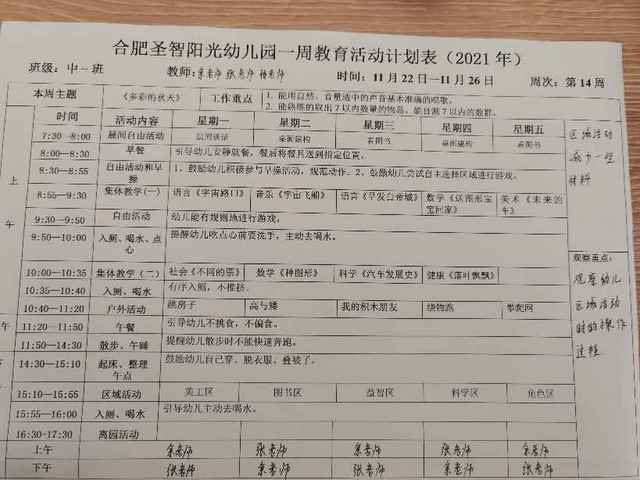 合肥圣智阳光幼儿园一周教育活动计划表（2021年）
班级：中一班 教师： 张老师 时间：11月22日—11月26日 周次：第14周
本周主题 《多彩的秋天》 工作重点 1. 能用自然、音量适中的声音基本准确的唱歌。
2. 能熟练的取出7以内数量的物品，能目测7以内的数群。
时间 活动内容 星期一 星期二 星期三 星期四 星期五
7:30—8:00 晨间自由活动 晨间谈话 桌面建构 看图书 桌面建构 看图书
8:00—8:30 早餐 引导幼儿安静就餐，餐后将餐具送到指定位置。
上午
8:30—8:55 自由活动和早操 1、鼓励幼儿积极参与早操活动，规范动作。2、鼓励幼儿尝试自主选择区域进行游戏。
8:55—9:30 集体教学(一) 语言《宇宙路口》 音乐《宇宙飞船》 语言《早发白帝城》 数学《送图形宝宝回家》 美术《未来的车》
9:30—9:50 自由活动 幼儿能有规则地进行游戏。
9:50—10:00 入厕、喝水、点心 提醒幼儿吃点心前要洗手，主动去喝水。
10:00—10:35 集体教学（二） 社会《不同的票》 数学《种图形》 科学《汽车发展史》 健康《落叶飘飘》
10:35—10:40 入厕、喝水 有序入厕，不推挤。
10:40—11:20 户外活动 跳房子 高与矮 我的积木朋友 绕物跑 攀爬网
11:20—11:50 午餐 引导幼儿不挑食，不偏食。
11:50—11:30 散步、午睡 提醒幼儿散步时不能快速奔跑。
14:30—15:10 起床、整理午点 鼓励幼儿自己穿、脱衣服、叠被子。
15:10—15:55 区域活动 美工区 图书区 益智区 科学区 角色区
15:55—16:00 入厕、喝水 引导幼儿主动去喝水。
16:30-17:30 离园活动
上午 余老师 张老师 余老师 张老师 余老师
下午 张老师 余老师 张老师 余老师 张老师
区域活动
减少一些
材料
观察重点：
观察幼儿
区域活动
时的操作
过程